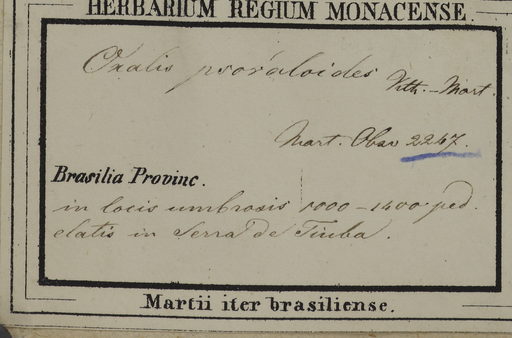 HERBARIUM REGIUM MONACENSE.
Oxalis psoraloides
Mart.
Mart. Obsv 2247.
Brasilia Provinc.
in locis umbrosis 1000-1400 ped.
elatis in Serra de Tiuba.
Martii iter brasiliense.